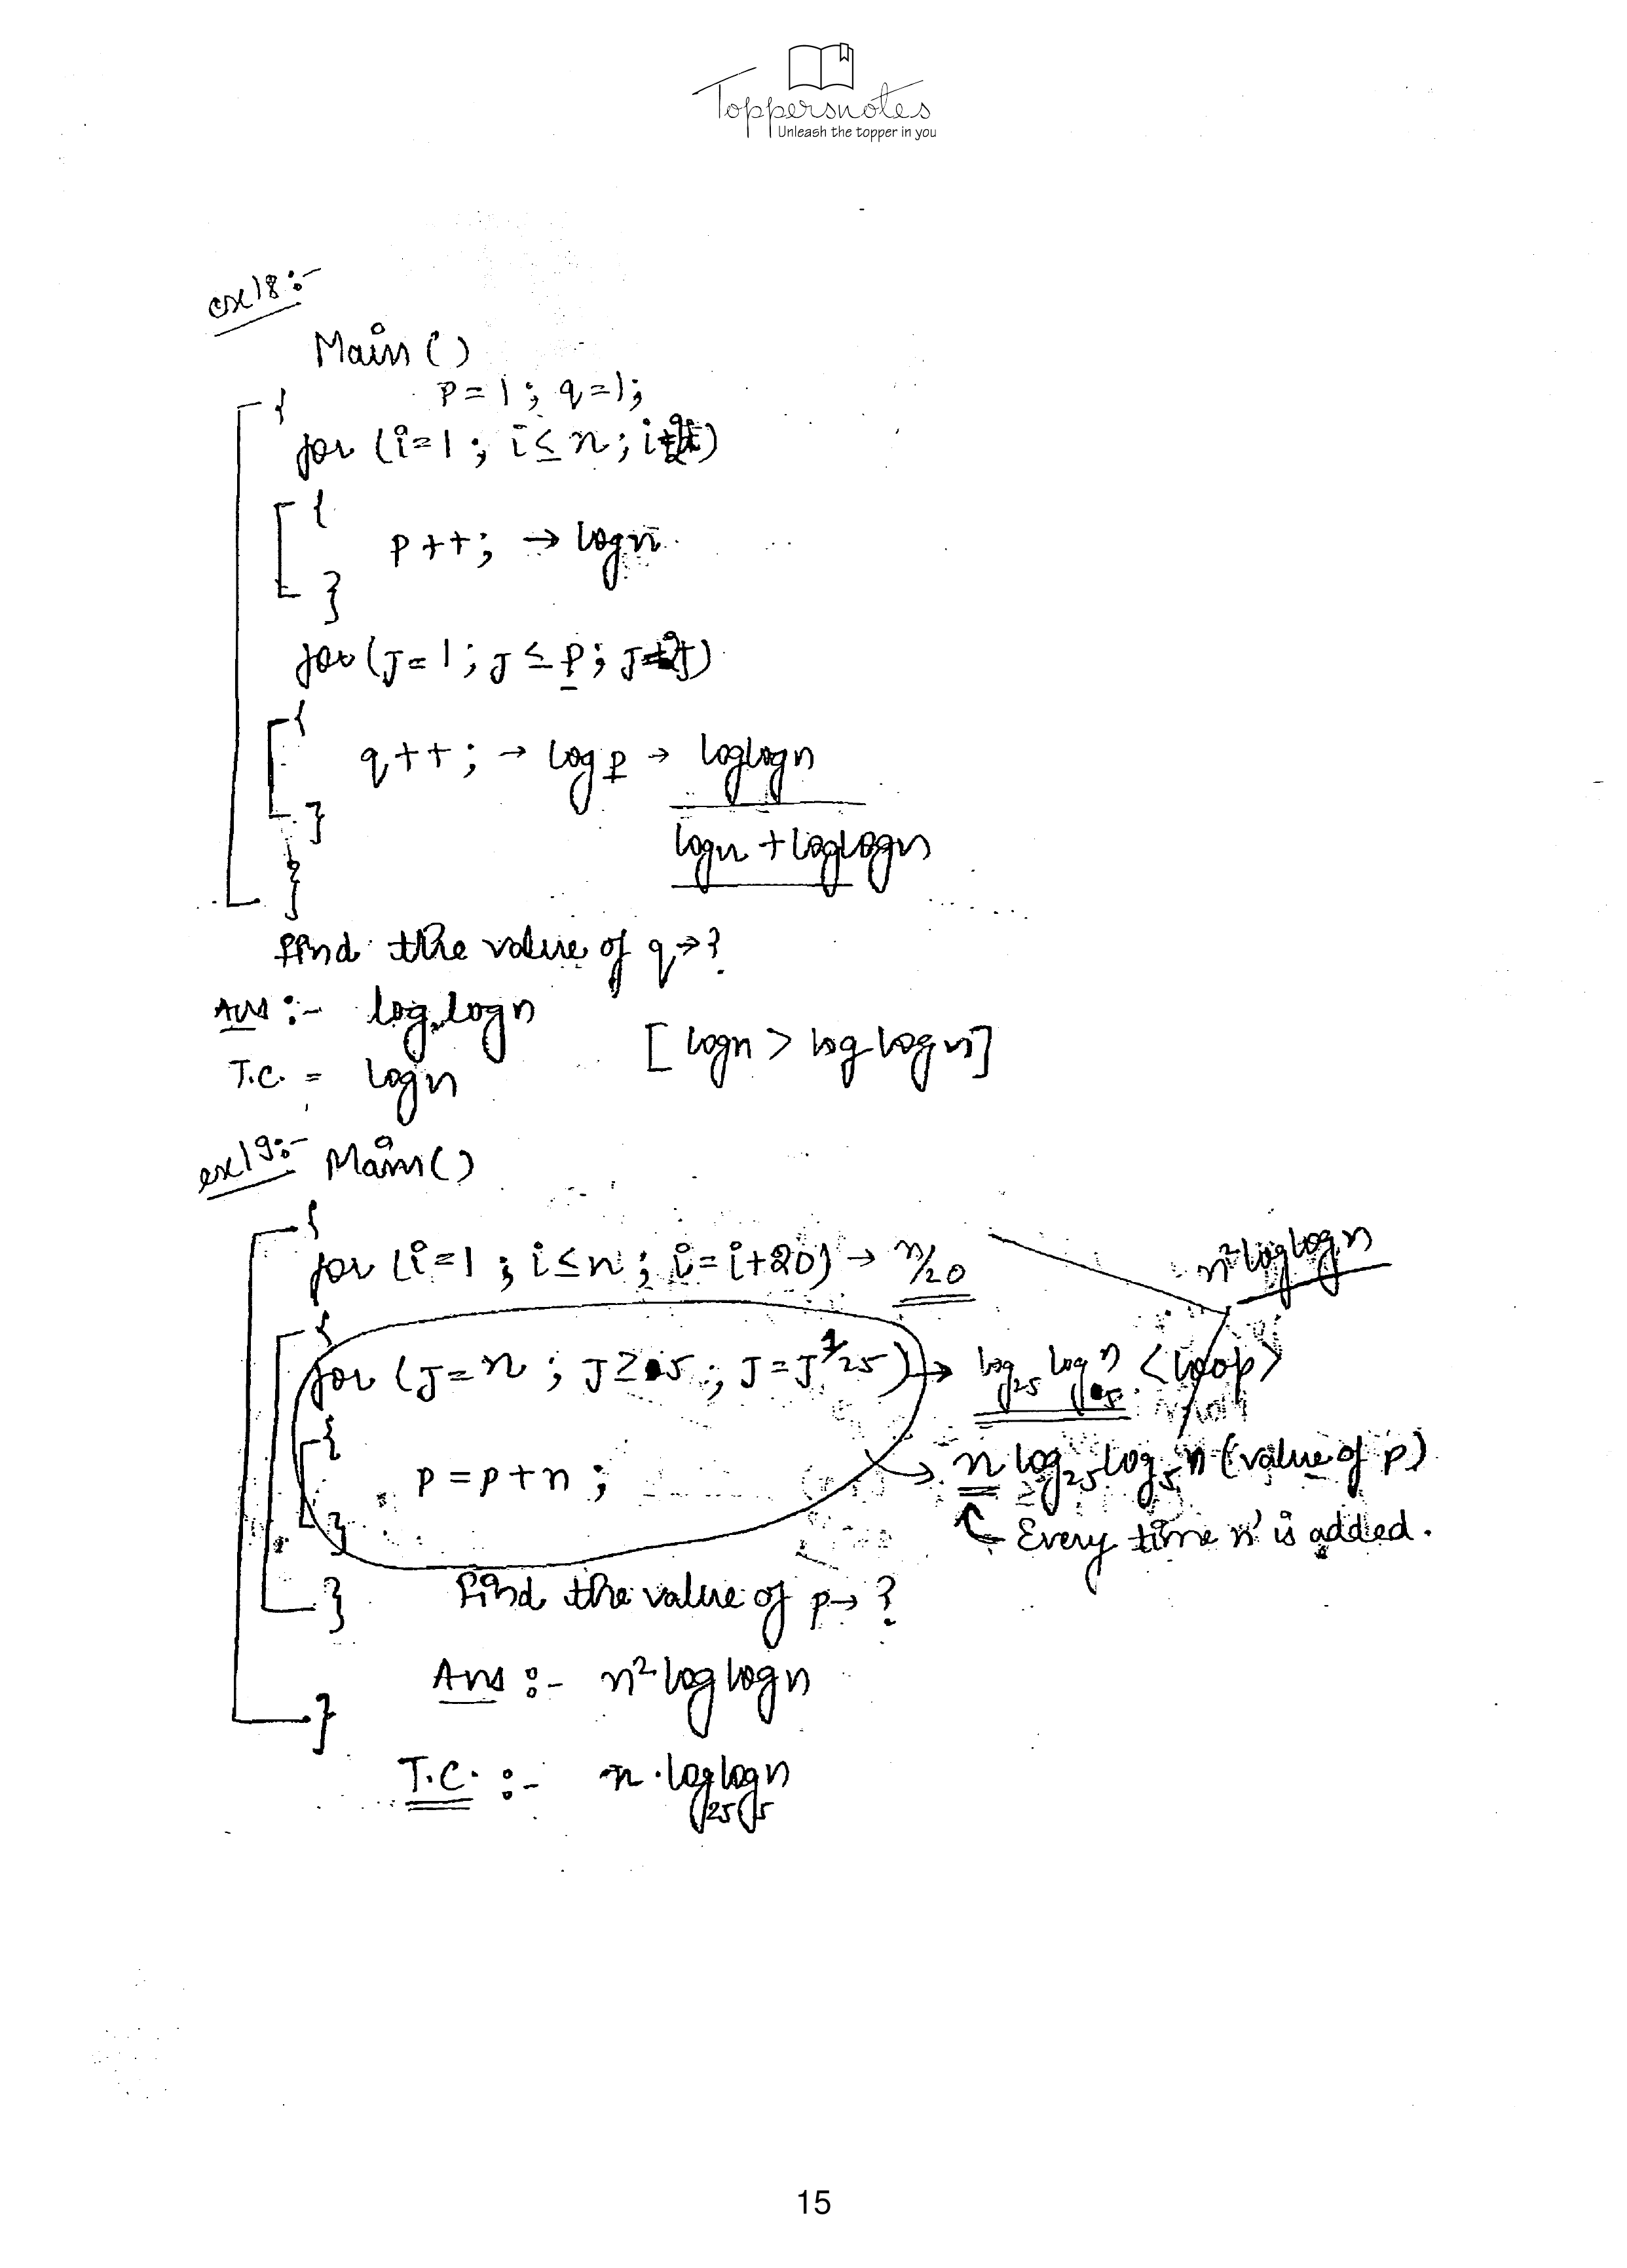 Toppersnotes
Unleash the topper in you
ex18:-
Main ()
p=1; q=1;
{
for (i=1; i≤n; i=2i)
{
p++; → logn
}
for (J=1; J≤p; J=2J)
{
q++; → log p → loglogn
}
logn + loglogn
}
find the value of q→?
Ans :- log logn
[logn > log logn]
T.C. = logn
ex19:- Main()
{
for (i=1; i≤n; i=i+20) → n/20
n²loglogn
{
for (J=n; J≥5; J=J^1/25) → log₂₅ log₅n <loop>
{
p=p+n;
→ n log₂₅log₅n (value of p)
Every time 'n' is added.
}
}
find the value of p→?
Ans :- n²loglogn
}
T.C. :- n.log₂₅log₅n
15